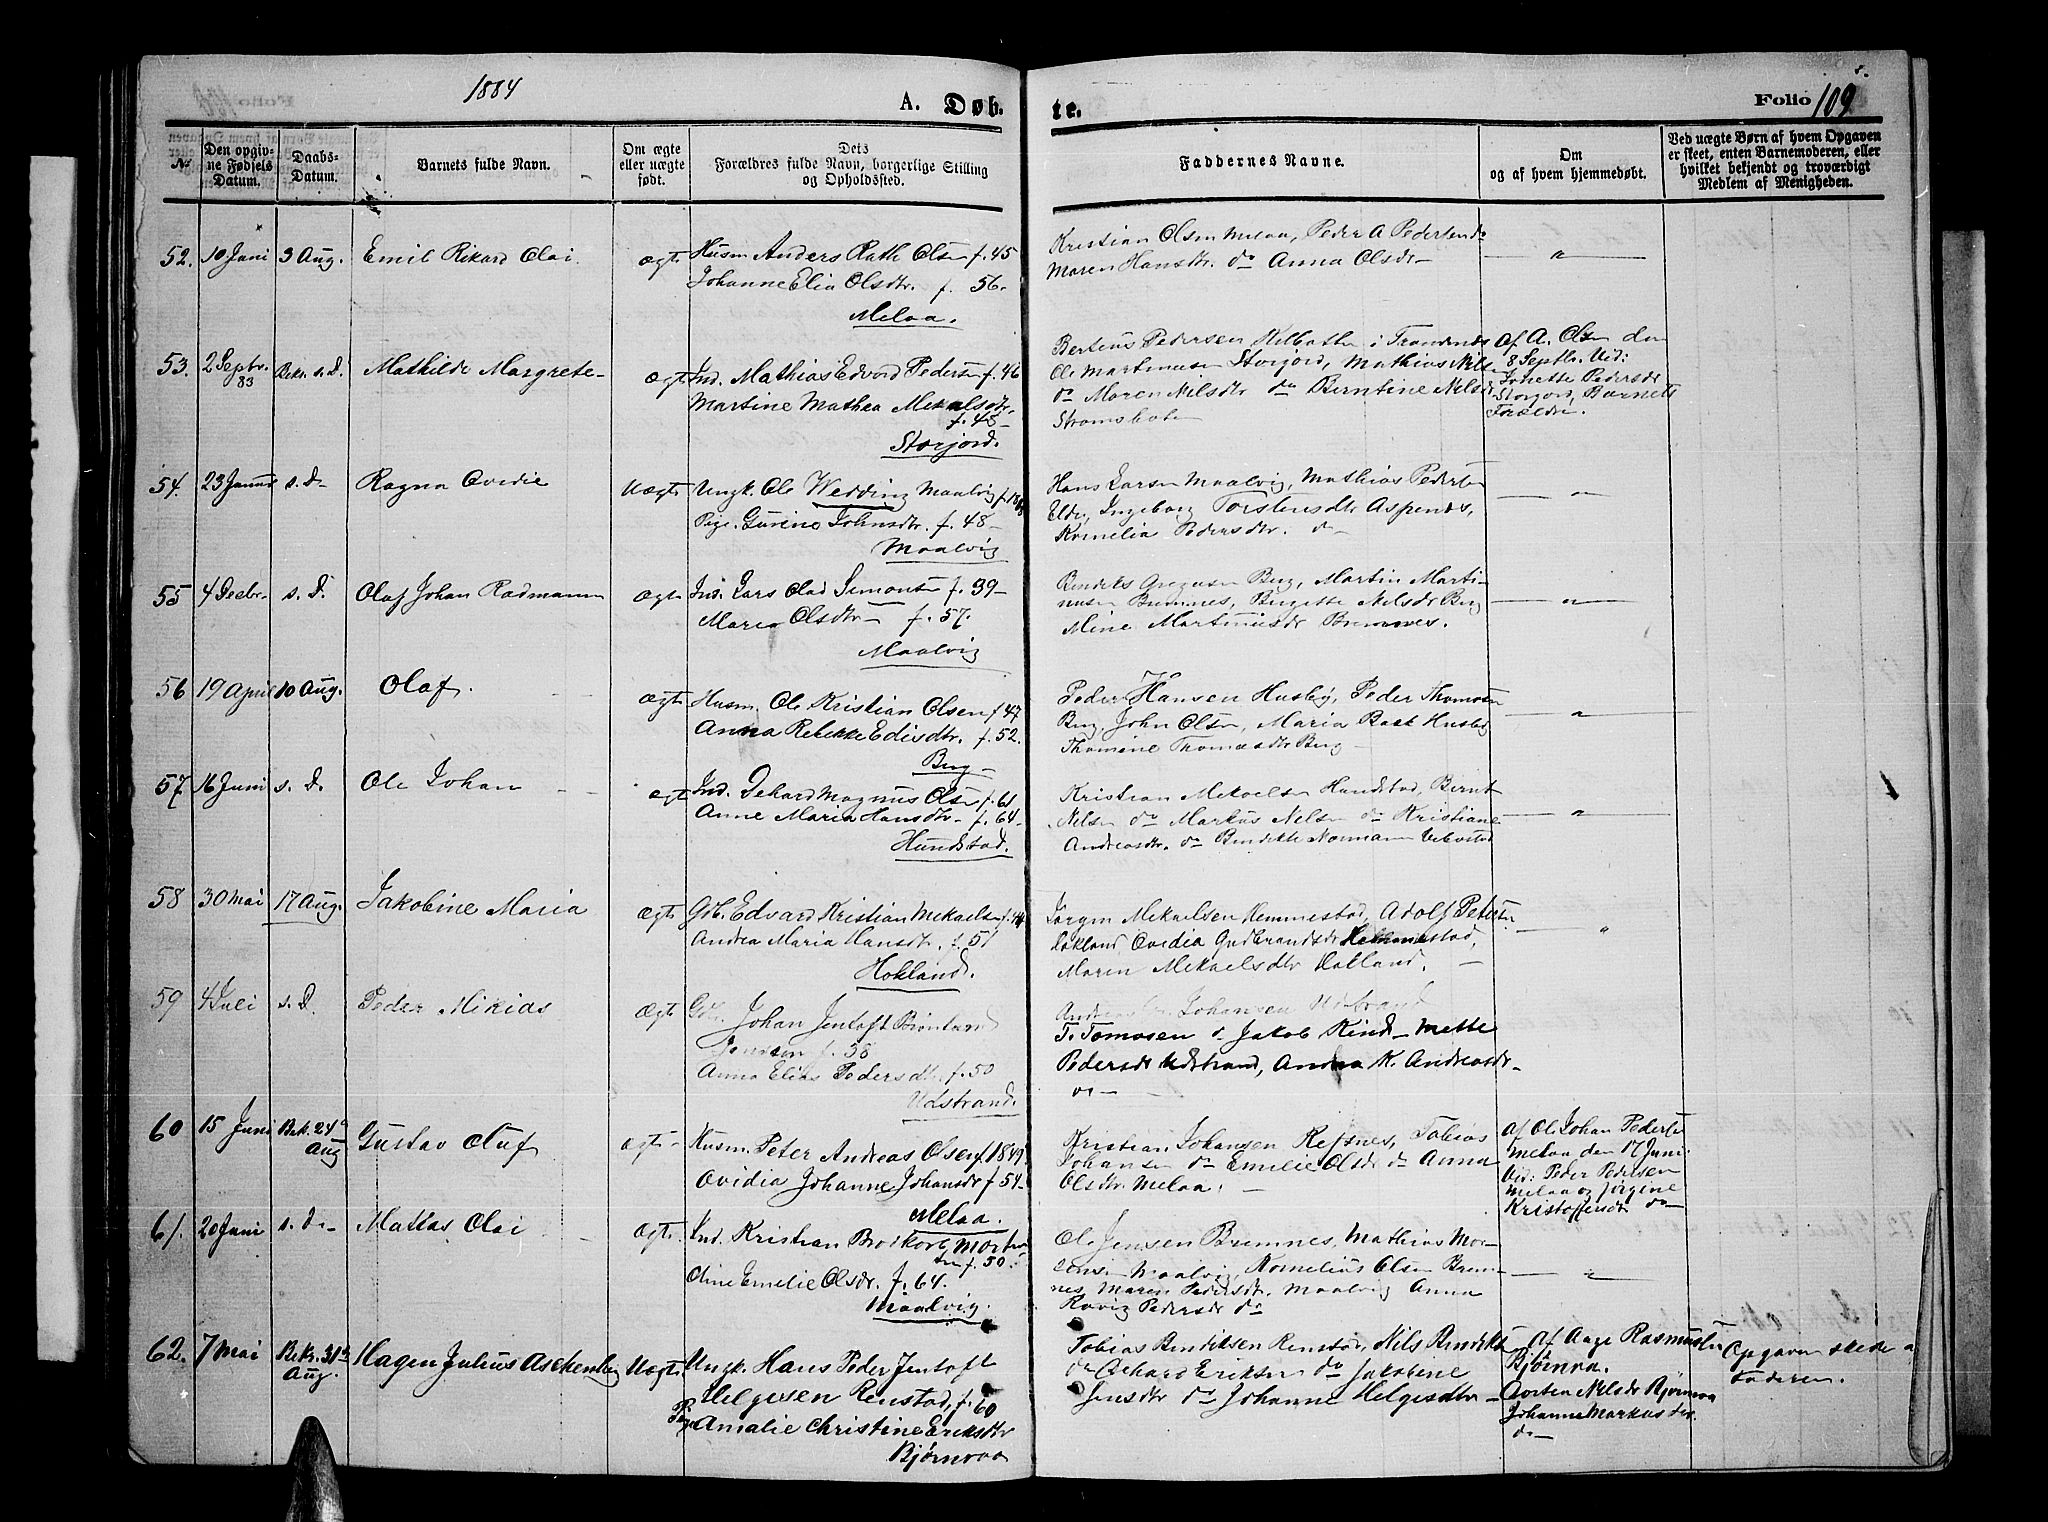 1884
A. Døb.
te.
Folio 109
No
Den opgiv-
ne Fødsels
Datum.
Daabs-
Datum.
Barnets fulde Navn.
Om ægte
eller uægte
født.
Dets
Forældres fulde Navn, borgerlige Stilling
og Opholdssted.
Faddernes Navne.
Om
og af hvem hjemmedøbt.
Ved uægte Børn af hvem Opgaven
er skeet, enten Barnemoderen, eller
hvilket bekjendt og troværdigt
Medlem af Menigheden.
52. 10 Juni 3 Aug. Emil Rikard Olai. Ægte Husm. Anders Rath Olsen f. 45
Johanne Elia Olsdtr. f. 56.
Melaa.
Kristian Olsen Melaa, Peder A Pedersen do
Maren Hansdtr. do Anna Olsdr
53. 2 Septbr. 83 Bekr. s. D. Mathilde Margrete Ægte Ind. Mathias Edvard Pedersen f. 46
Martine Mathea Mekalsdtr.
f. 45
Storjord.
Berteus Pedersen Kilbotten i Trondenes
Ole Martinusen Storjord, Mathias Nilsen
do Maren Nilsdtr do Berntine Nilsdr
Stromsbotn
Af A. Olsen den
8 Septbr. Vid:
Jonette Pedersdr
Storjord, Barnets
Forældre.
54. 23 Januar s. D. Ragna Ovidie Uægte Ungk. Ole Wedding Maalvig
Pige. Gurine Johnsdtr. f. 48
Maalvig
Hans Larsen Maalvig, Mathias Pedersen
Elde, Ingeborg Torstensdtr Aspenes,
Kornelia Pedersdtr. do
55 4 Decbr. s. D. Olaf Johan Rodmann Ægte Ind. Lars Olad Simonsen f. 39
Maria Olsdtr f. 57.
Maalvig
Bendiks Gregusen Berg, Martin Marti-
nusen Bremnes, Birgitte Nilsdr Berg
Mine Martinusdr Bremnes.
56 19 April 10 Aug. Olaf. Ægte Husm. Ole Kristian Olsen f. 47
Anna Rebekke Edisdtr. f. 52.
Berg
Peder Hansen Husby, Peder Thomasen
Berg, John Olsen, Maria Baak Husby
Thomine Thomasdtr Berg
57. 16 Juni s. D. Ole Johan Ægte Ind. Gehard Magnus Olsen f. 61
Anne Maria Hansdtr. f. 64
Hundstad.
Kristian Mekaelsen Hundstad, Bernt
Nilsen do Markus Nilsen do Kristiane
Andreasdtr. do Bendikte Normann
58 30 Mai 17 Aug. Jakobine Maria Ægte Gdb. Edvard Kristian Mekaelsen f. 44
Andrea Maria Hansdtr. f. 51
Hokland.
Jørgen Mekaelsen Hemmestad, Adolf Petersen
Hokland Ovidia Gudbrandsdr Hemmestad,
Maren Mekaelsdtr Hokland.
59 4 Juli s. D. Peder Mikias Ægte Gdb. Johan Jentoft Brøntlund
Jensen f. 58
Anna Elias Pedersdtr. f. 50
Udstrand.
Andreas Johansen Udstrand
T. Tomasen do Jakob Kind Mette
Pedersdr Udstrand, Andrea K. Andreasdr
do
60 15 Juni Bek. 24 Aug Gustav Oluf Ægte Husm. Peter Andreas Olsen f. 1849
Ovidia Johanne Johansdr f 54
Melaa.
Kristian Johansen Refsnes, Tobias
Johansen do Emilie Olsdr do Anna
Olsdtr. Melaa.
Af Ole Johan Pedersen
Melaa den 17 Juni.
Vid: Peder Pedersen
Melaa og Jørgine
Kristoffersdr do
61. 20 Juni s. d. Matias Olai Ægte Ind. Kristian Brodkorb Morten-
sen f. 50.
Oline Emelie Olsdr. f. 64.
Maalvig.
Ole Jensen Bremnes, Mathias Mor-
tensen Maalvig, Kornelius Olsen Brem-
nes, Maren Pedersdtr. Maalvig Anna
Ravig Pedersdr do
62. 7 Mai Bekr. 31 Aug. Hagen Julius Aschenberg Uægte Ungk. Hans Peder Jentoft
Helgesen Renstad, f. 60
Pige Amalie Christine Eriksdtr
Bjørnraa
Tobias Bendiksen Renstad, Nils Bendiksen
do Gerhard Eriksen do Jakobine
Jensdtr do Johanne Helgesdtr
Af Aage Rasmusen
Bjørnraa.
Dorten Nilsdr Bjørnraa
Johanne Markusdr
do
Opgaven skede a
Faderen.